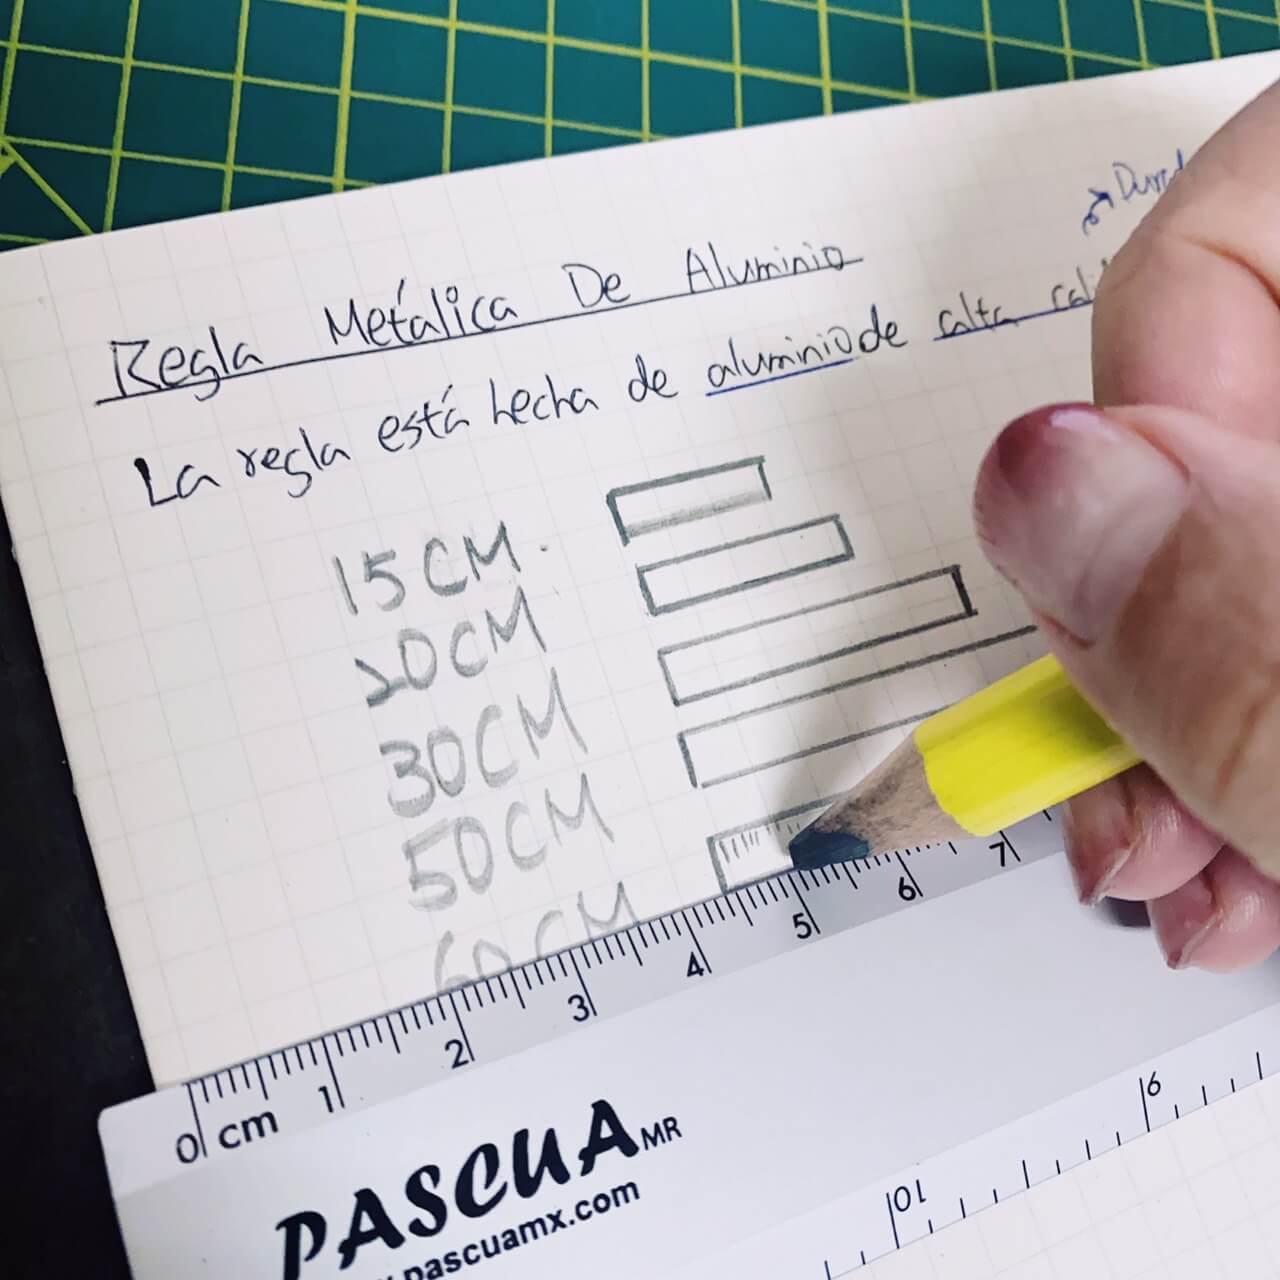 Regla Metálica De Aluminio
La regla está hecha de aluminio de alta
15CM.
20CM
30CM
50CM
60CM
0 cm 1 2 3 4 5 6 7
PASCUA MR
pascuamx.com
10 9